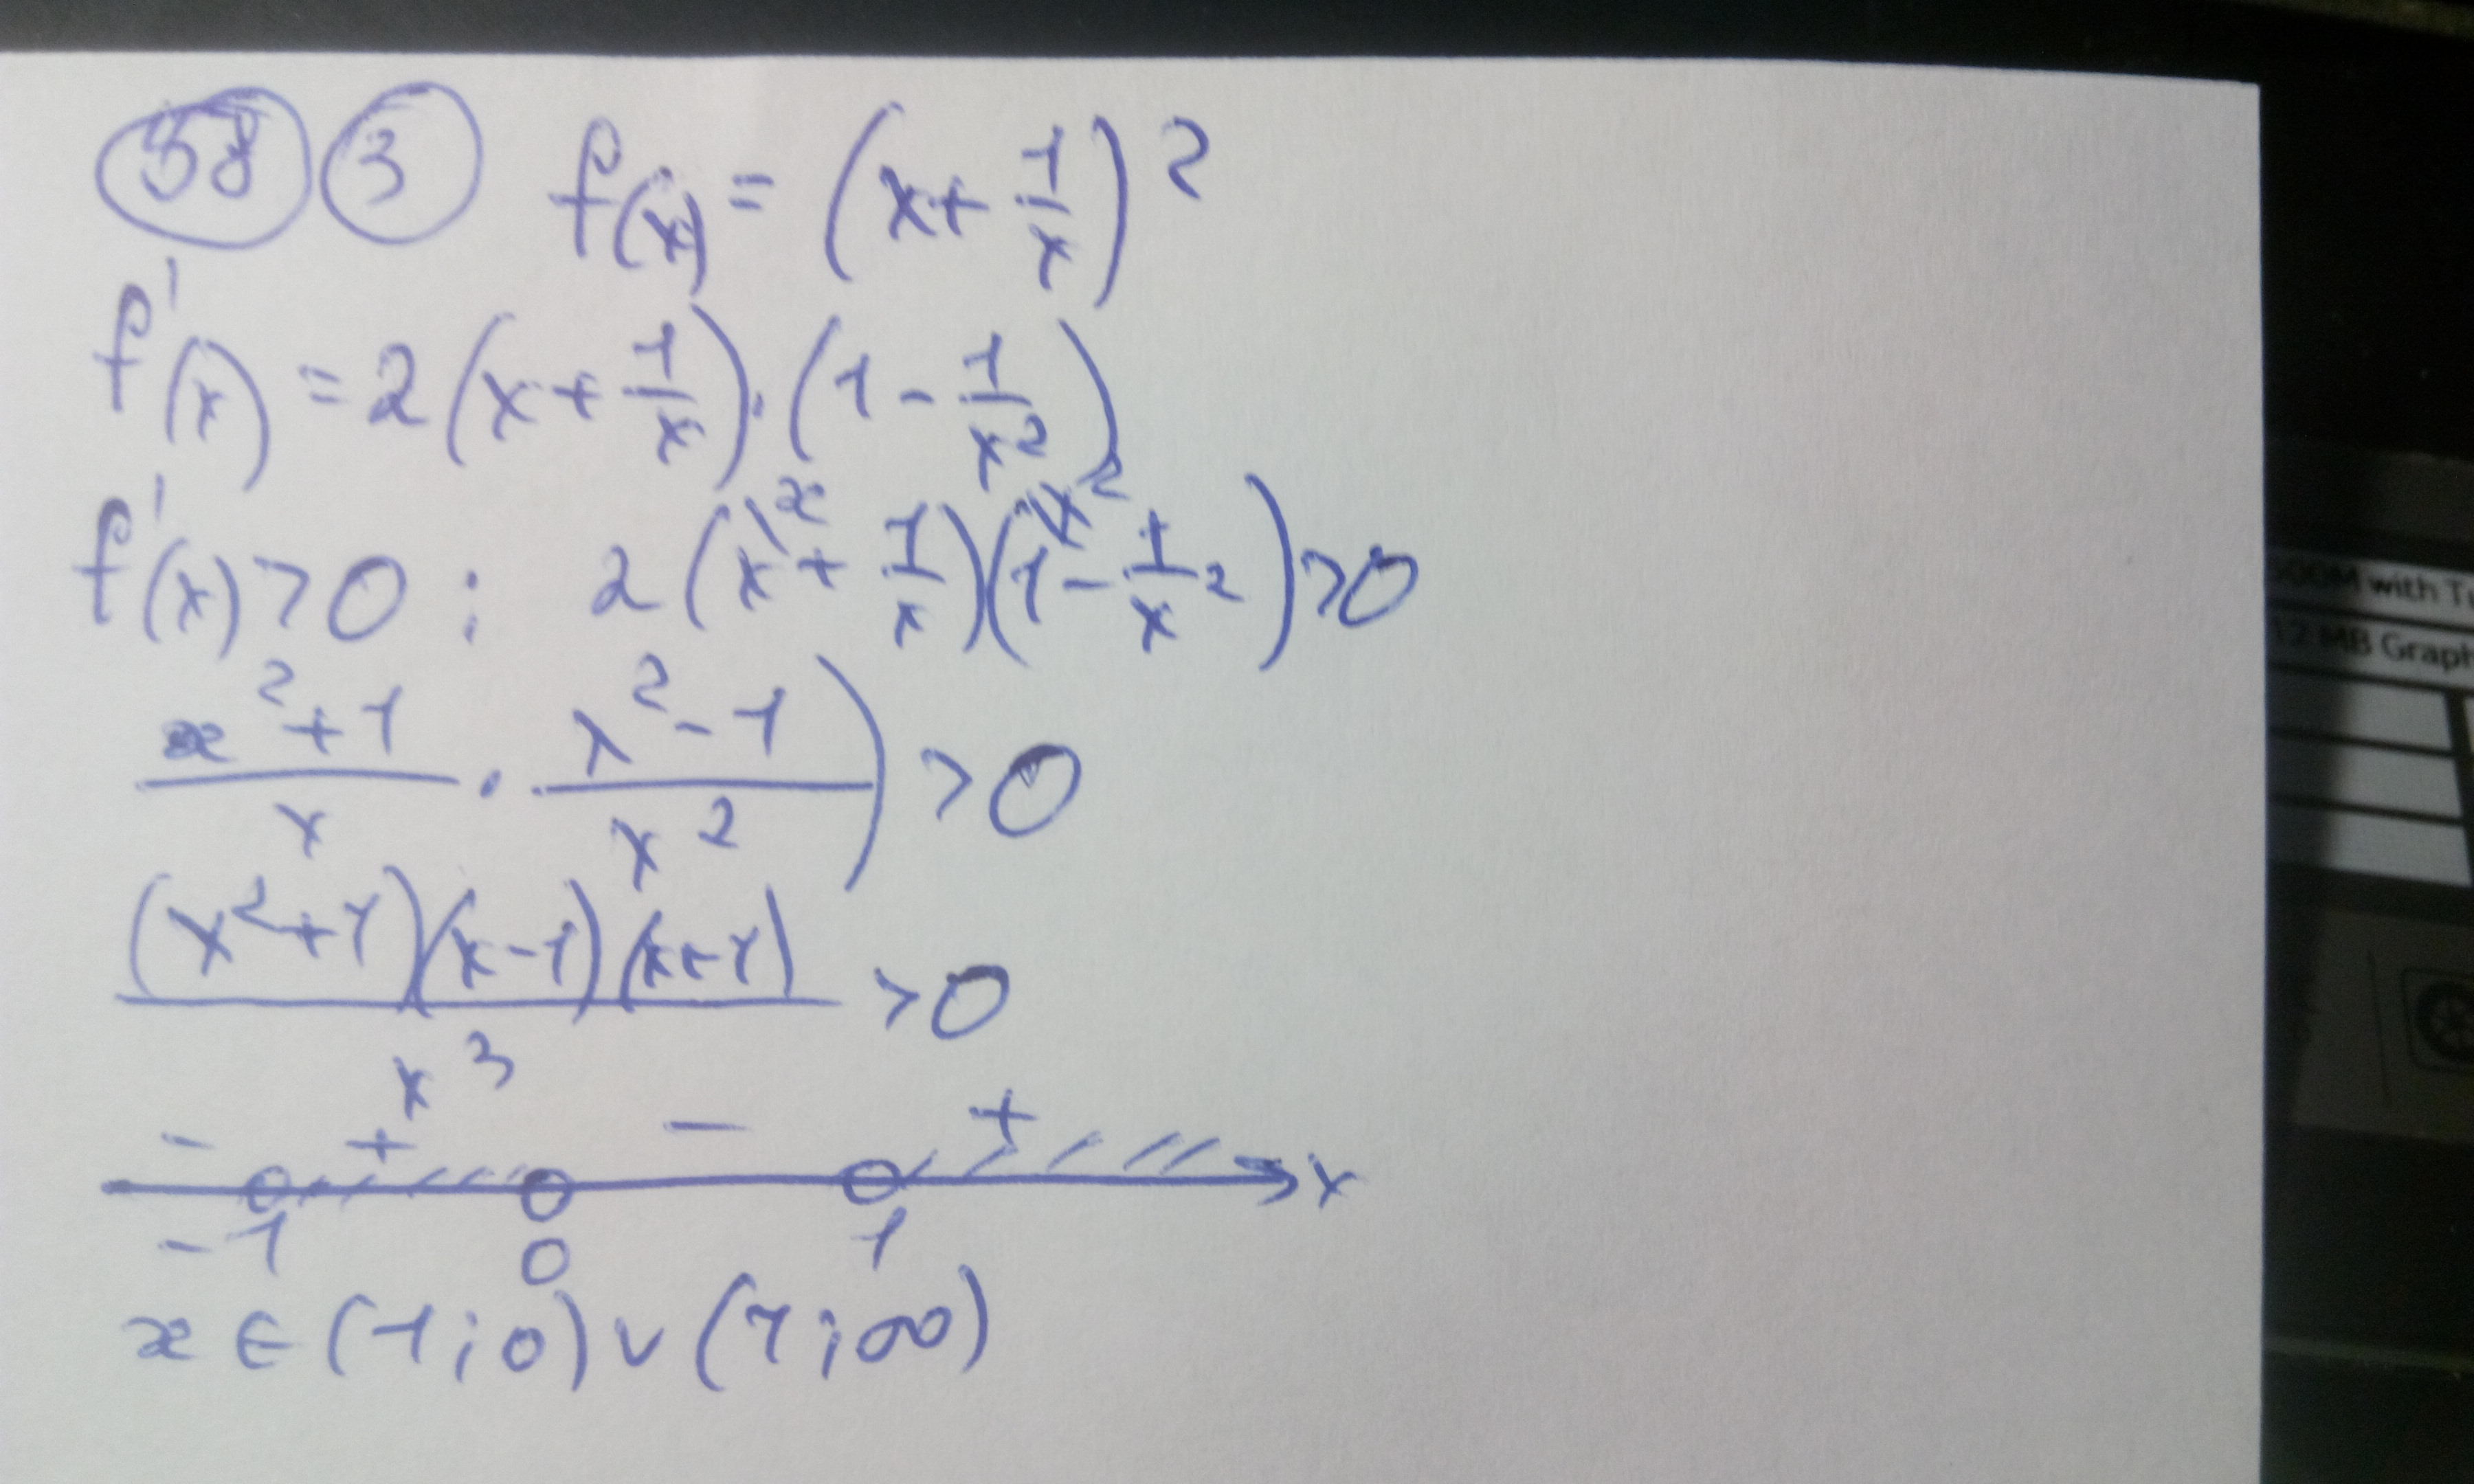 58 3 f(x) = (x + 1/x)²
f'(x) = 2(x + 1/x) · (1 - 1/x²)
f'(x) > 0 ; 2(x\ˣ + 1/x)(1\ˣ² - 1/x²) > 0
(x² + 1)/x · (x² - 1)/x²) > 0
(x² + 1)(x - 1)(x + 1)/x³ > 0
- + - +
-1 0 1 x
x ∈ (-1; 0) ∪ (1; ∞)
500M with Tu
12 MB Graph